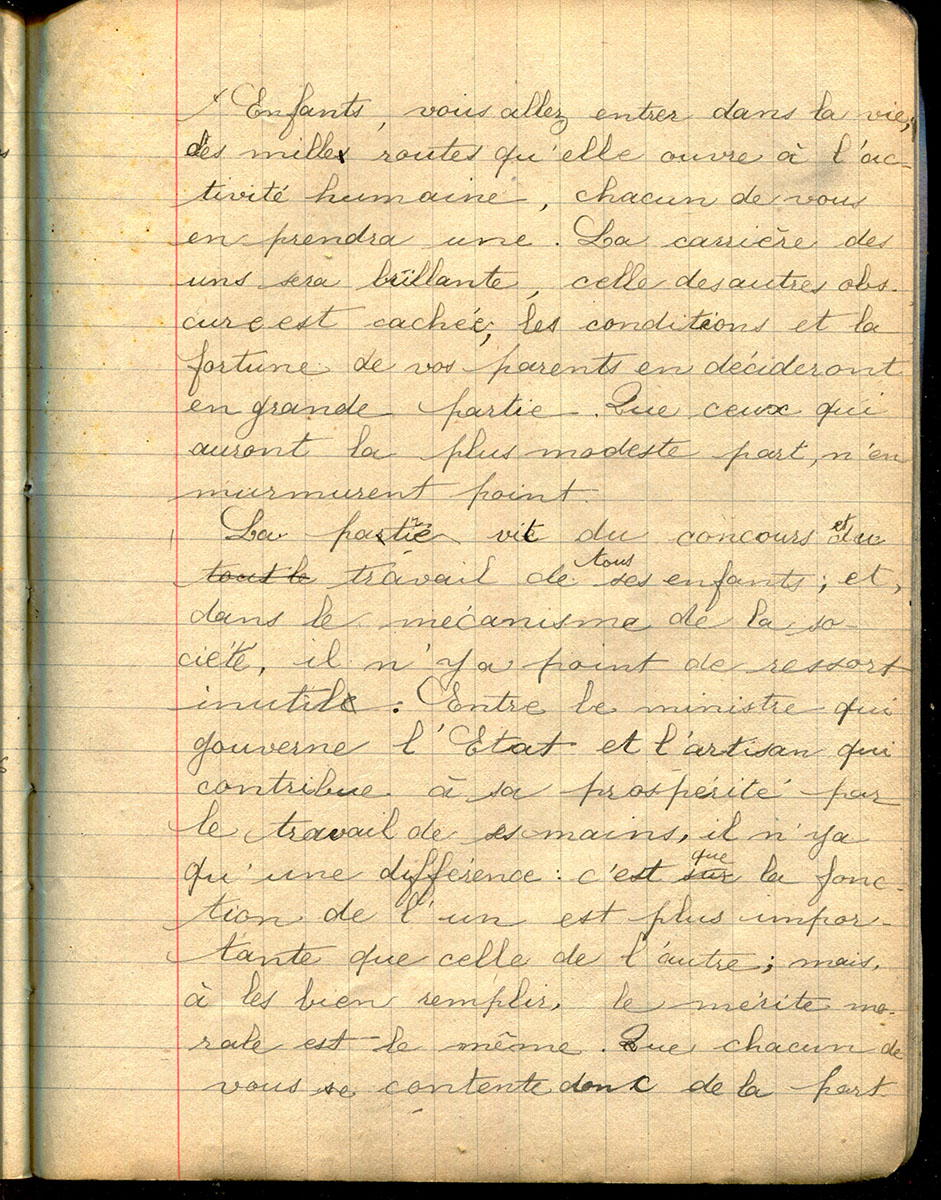 Enfants, vous allez entrer dans la vie,
des mille routes qu'elle ouvre à l'ac-
tivité humaine, chacun de vous
en prendra une. La carrière des
uns sera brillante, celle des autres obs-
cure est cachée, les conditions et la
fortune de vos parents en décideront
en grande partie. Que ceux qui
auront la plus modeste part, n'en
murmurent point.
La patrie vit du concours et du
tout le travail de tous ses enfants; et,
dans le mécanisme de la so-
ciété, il n'y a point de ressort
inutile. Entre le ministre qui
gouverne l'Etat et l'artisan qui
contribue à sa prospérité par
le travail de ses mains, il n'y a
qu'une différence: c'est sur que la fonc-
tion de l'un est plus impor-
tante que celle de l'autre; mais,
à les bien remplir, le mérite mo-
rale est le même. Que chacun de
vous se contente donc de la part